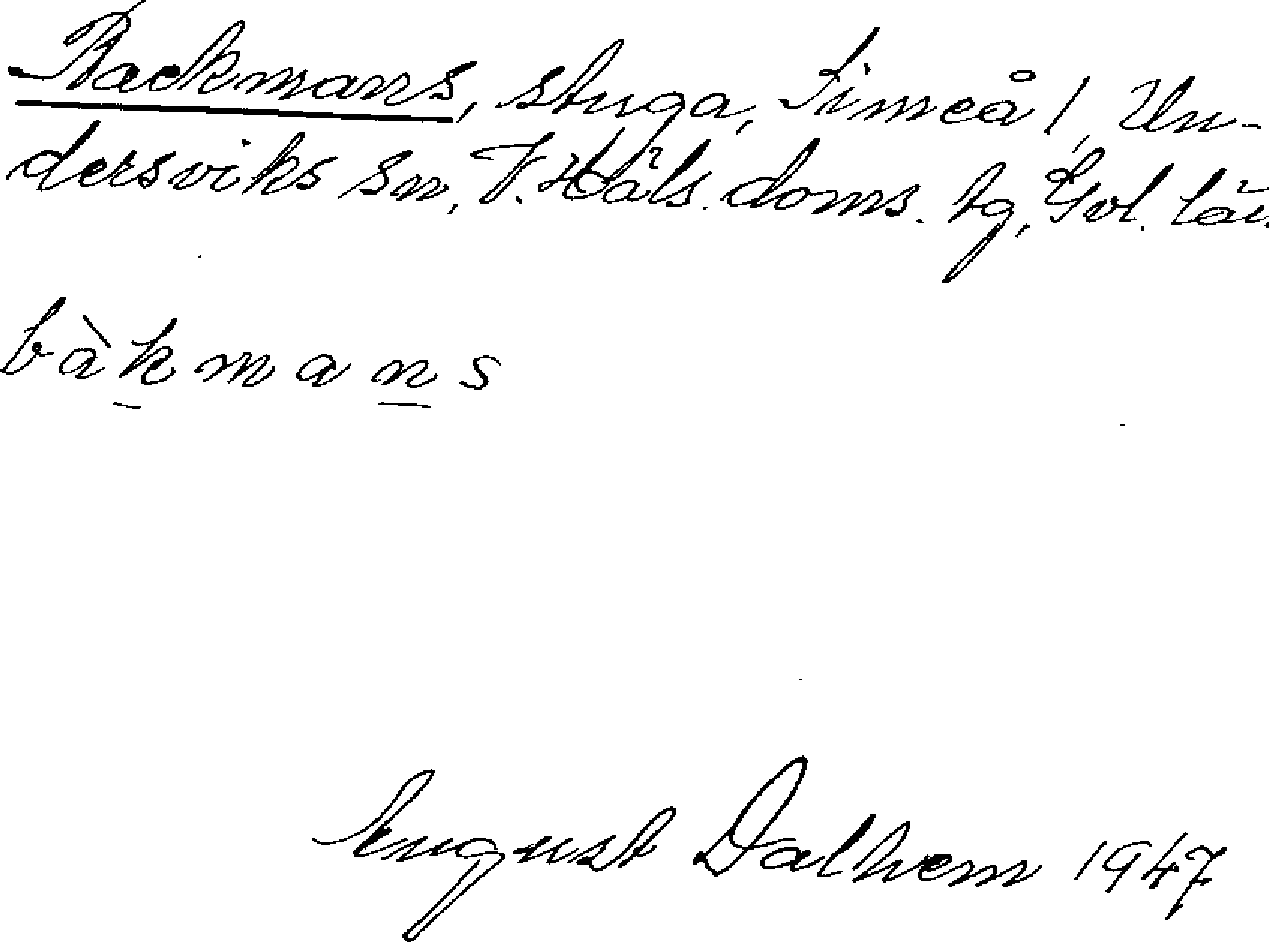 Backmans, stuga, Simeå 1, Un-
dersviks sn, V. Häls. doms. tg, Gvl. län.
bàkmans
August Dalhem 1947